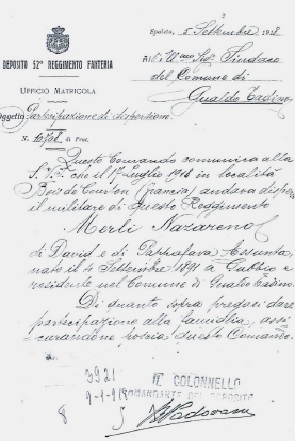 Spoleto, 5 Settembre 1918
DEPOSITO 52º REGGIMENTO FANTERIA
All'Ill.mo Sig. Sindaco
del Comune di
Gualdo Tadino
UFFICIO MATRICOLA
Oggetto Partecipazione di dispersione
N. di Prot.
Questo Comando comunica alla
S.V. che il 17 Luglio 1918 in località
Bois de Courton (Francia) andava disperso
il militare di questo Reggimento
Merli Nazareno
di David e di Assunta,
nato il 4 Settembre 1891 a Gubbio e
residente nel Comune di Gualdo Tadino.
Di quanto sopra pregasi dare
partecipazione alla famiglia, assi
curandone poscia questo Comando.
3921
IL COLONNELLO
COMANDANTE DEL DEPOSITO
8
Padovani